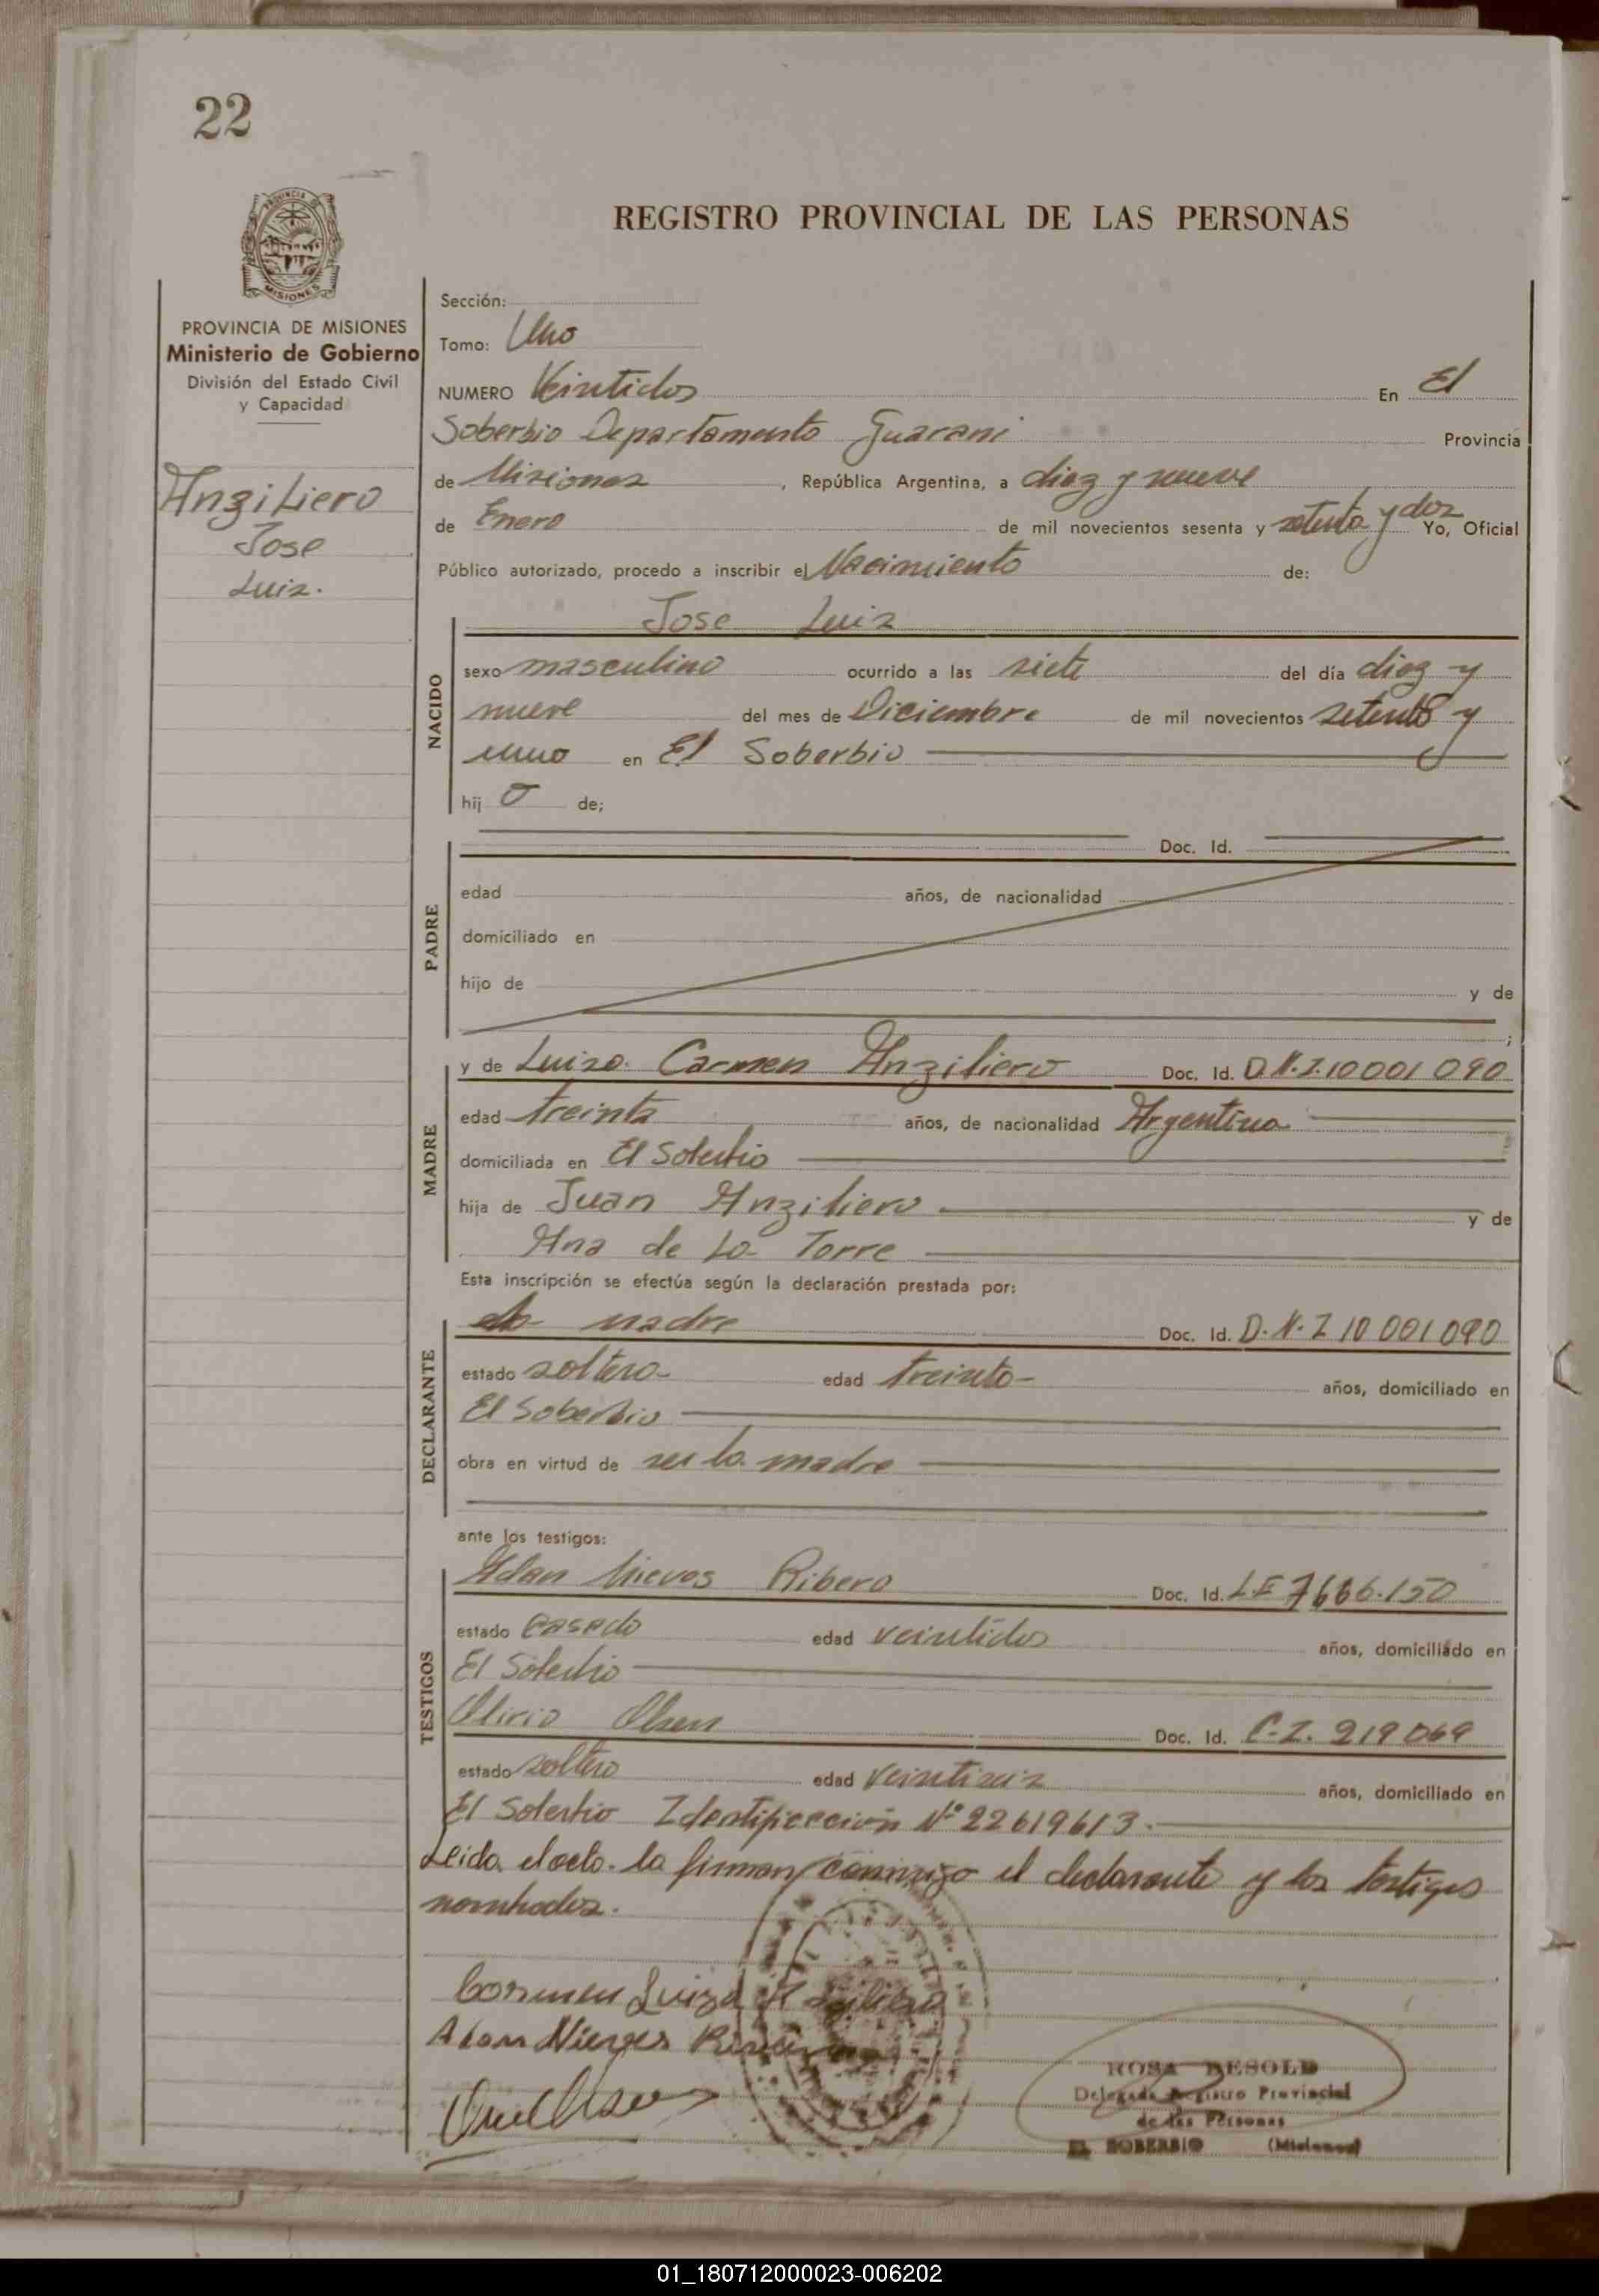 22
REGISTRO PROVINCIAL DE LAS PERSONAS
PROVINCIA DE
MISIONES
PROVINCIA DE MISIONES
Ministerio de Gobierno
División del Estado Civil
y Capacidad
Anziliero
Jose
Luiz.
Sección:
Tomo: Uno
NUMERO Veintidos En El
Soberbio Departamento Guarani Provincia
de Misiones, República Argentina, a diez y nueve
de Enero de mil novecientos sesenta y setenta y dos Yo, Oficial
Público autorizado, procedo a inscribir el Nacimiento de:
NACIDO
Jose Luiz
sexo masculino ocurrido a las siete del día diez y
nueve del mes de Diciembre de mil novecientos setenta y
uno en El Soberbio
hij o de;
PADRE
Doc. Id.
edad años, de nacionalidad
domiciliado en
hijo de y de
;
MADRE
y de Luiza Carmen Anziliero Doc. Id. D.N.I. 10001090
edad treinta años, de nacionalidad Argentina
domiciliada en El Soberbio
hija de Juan Anziliero y de
Ana de La Torre
Esta inscripción se efectúa según la declaración prestada por:
DECLARANTE
la madre Doc. Id. D.N.I 10 001 090
estado soltera edad treinta años, domiciliado en
El Soberbio
obra en virtud de ser la madre
ante los testigos:
TESTIGOS
Adan Nieves Ribero Doc. Id. L.E 7666.150
estado casado edad veintidos años, domiciliado en
El Soberbio
Olirio Olsen Doc. Id. C.I. 219069
estado soltero edad veintiseiz años, domiciliado en
El Soberbio Identificación Nº 22619613.
Leida el acta la firman conmigo el declarante y los testigos
nombrados.
Carmen Luiza Anziliero
Adan Nieves Ribero
ROSA BESOLD
Delegada Registro Provincial
de las Personas
EL SOBERBIO (Misiones)
01_180712000023-006202